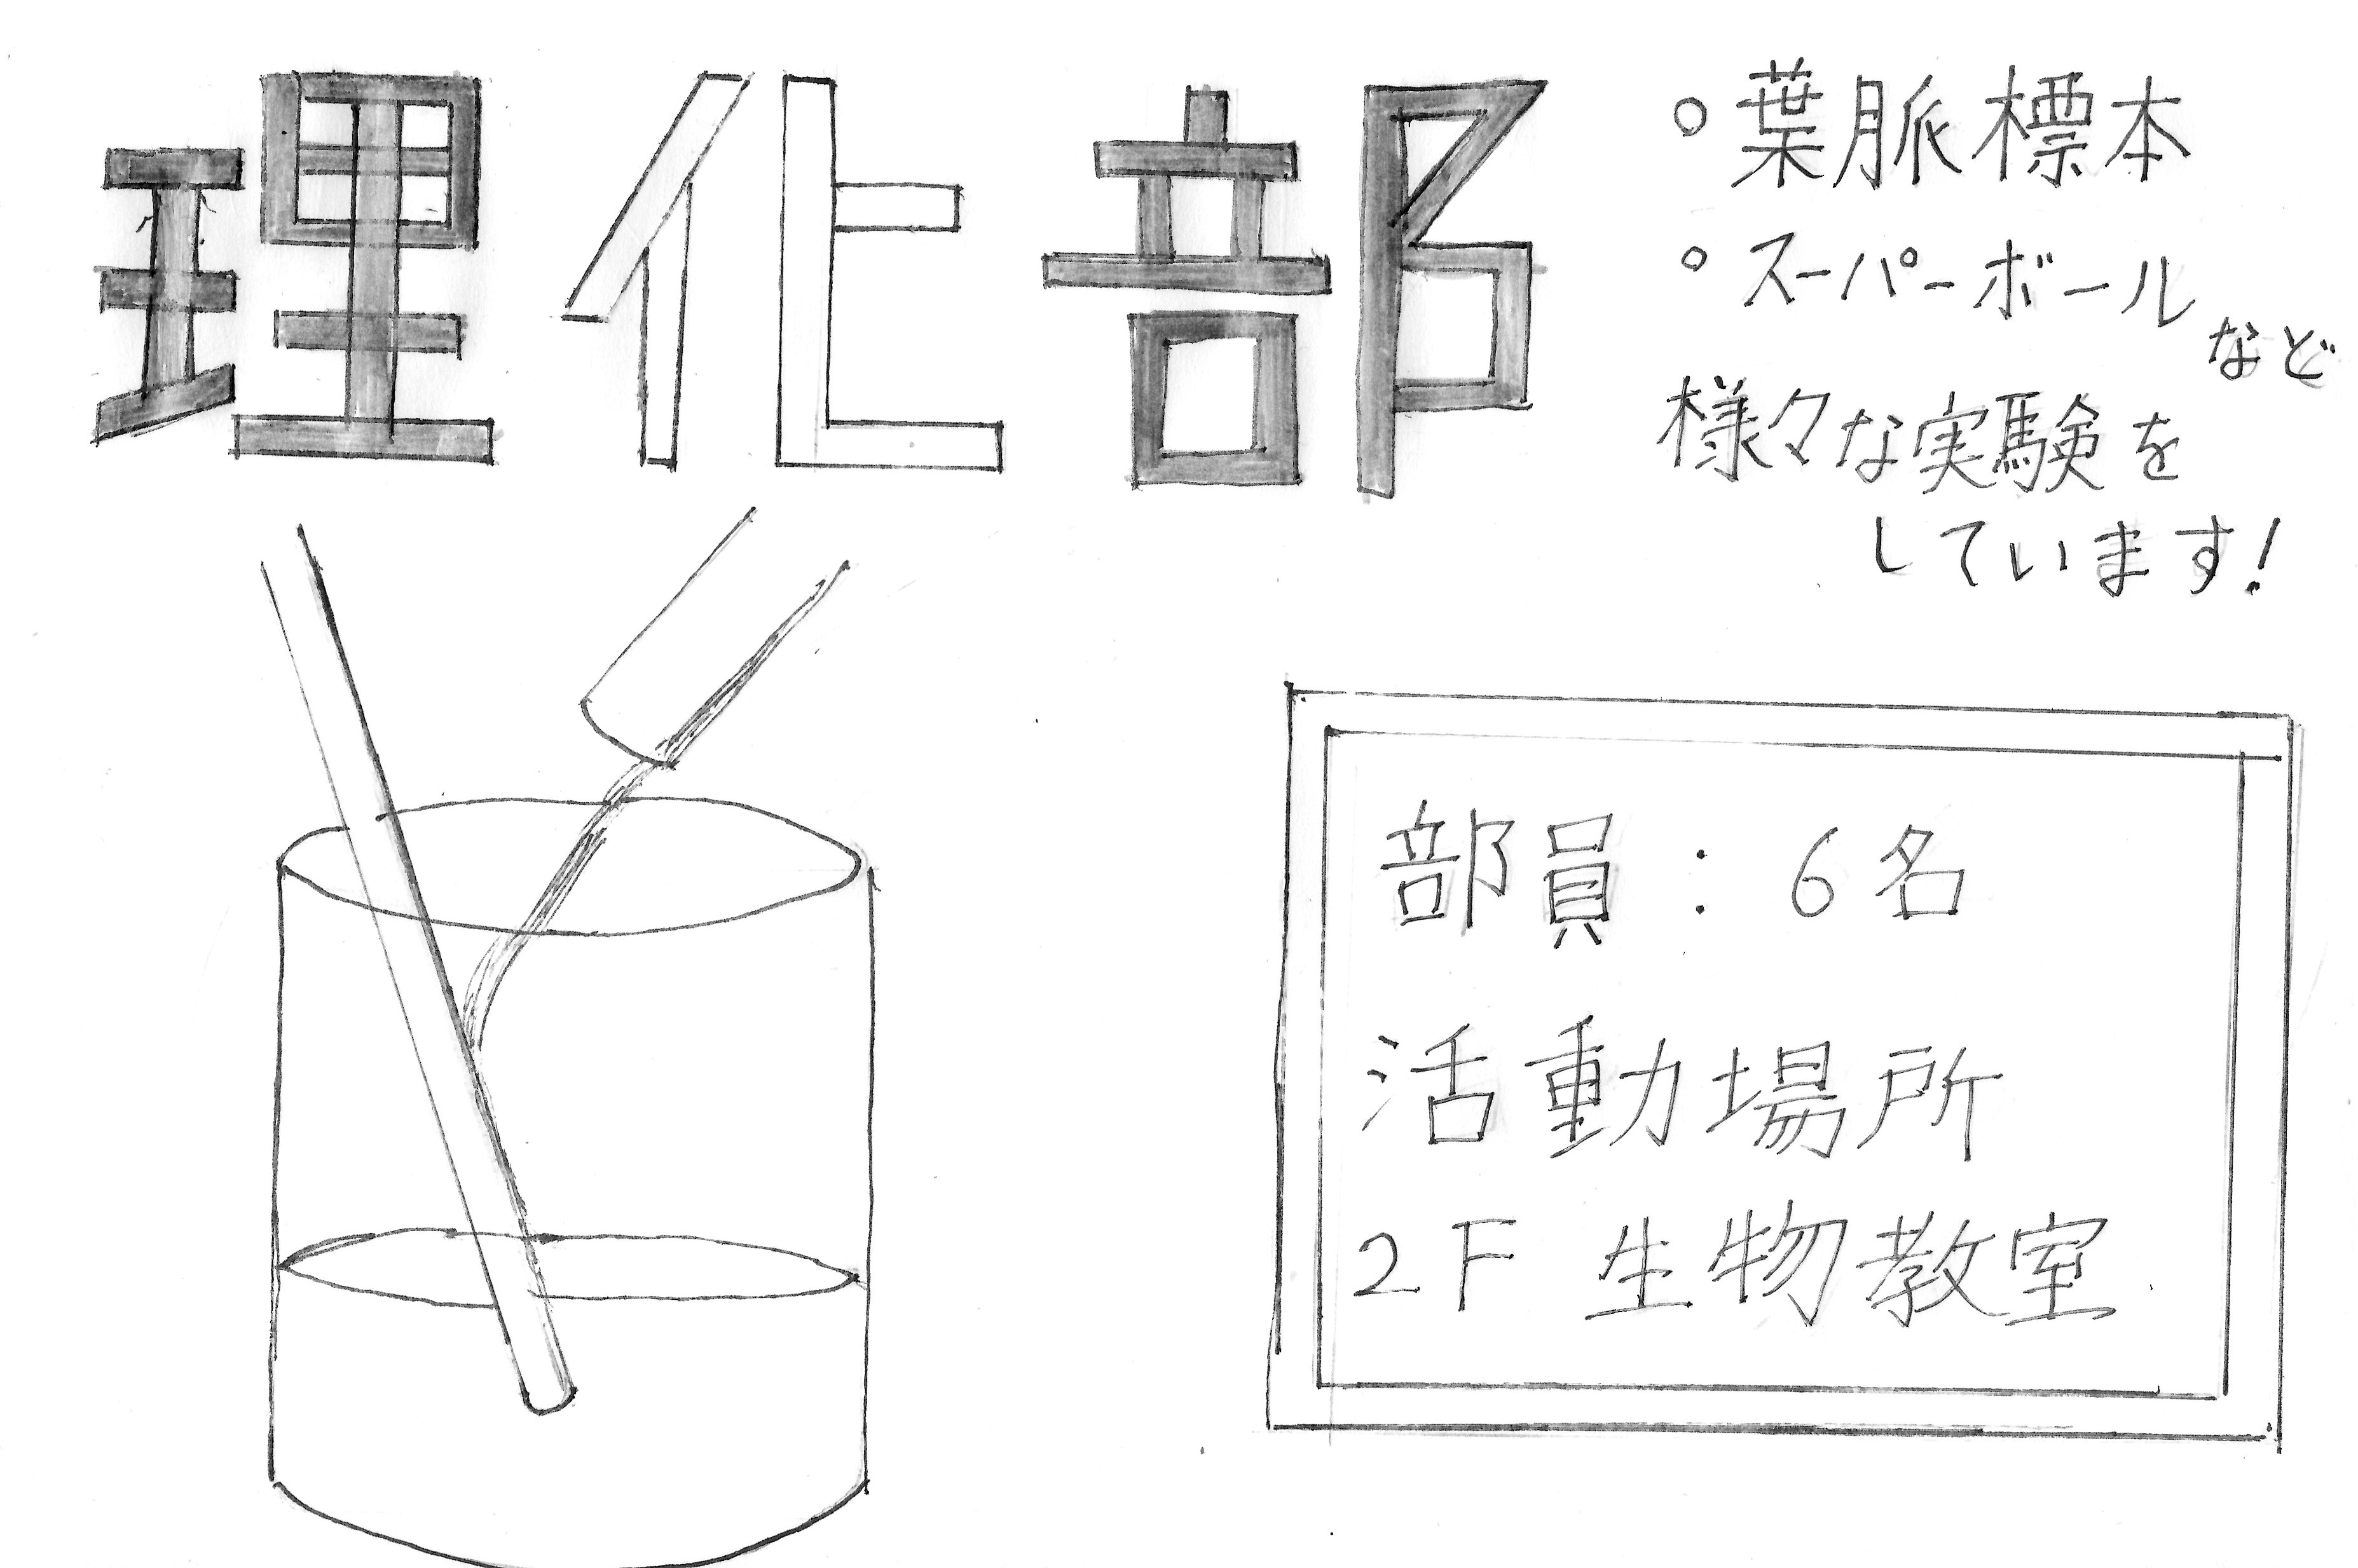 理化部
○葉脈標本
○スーパーボール
など
様々な実験を
しています!
部員：6名
活動場所
2F 生物教室